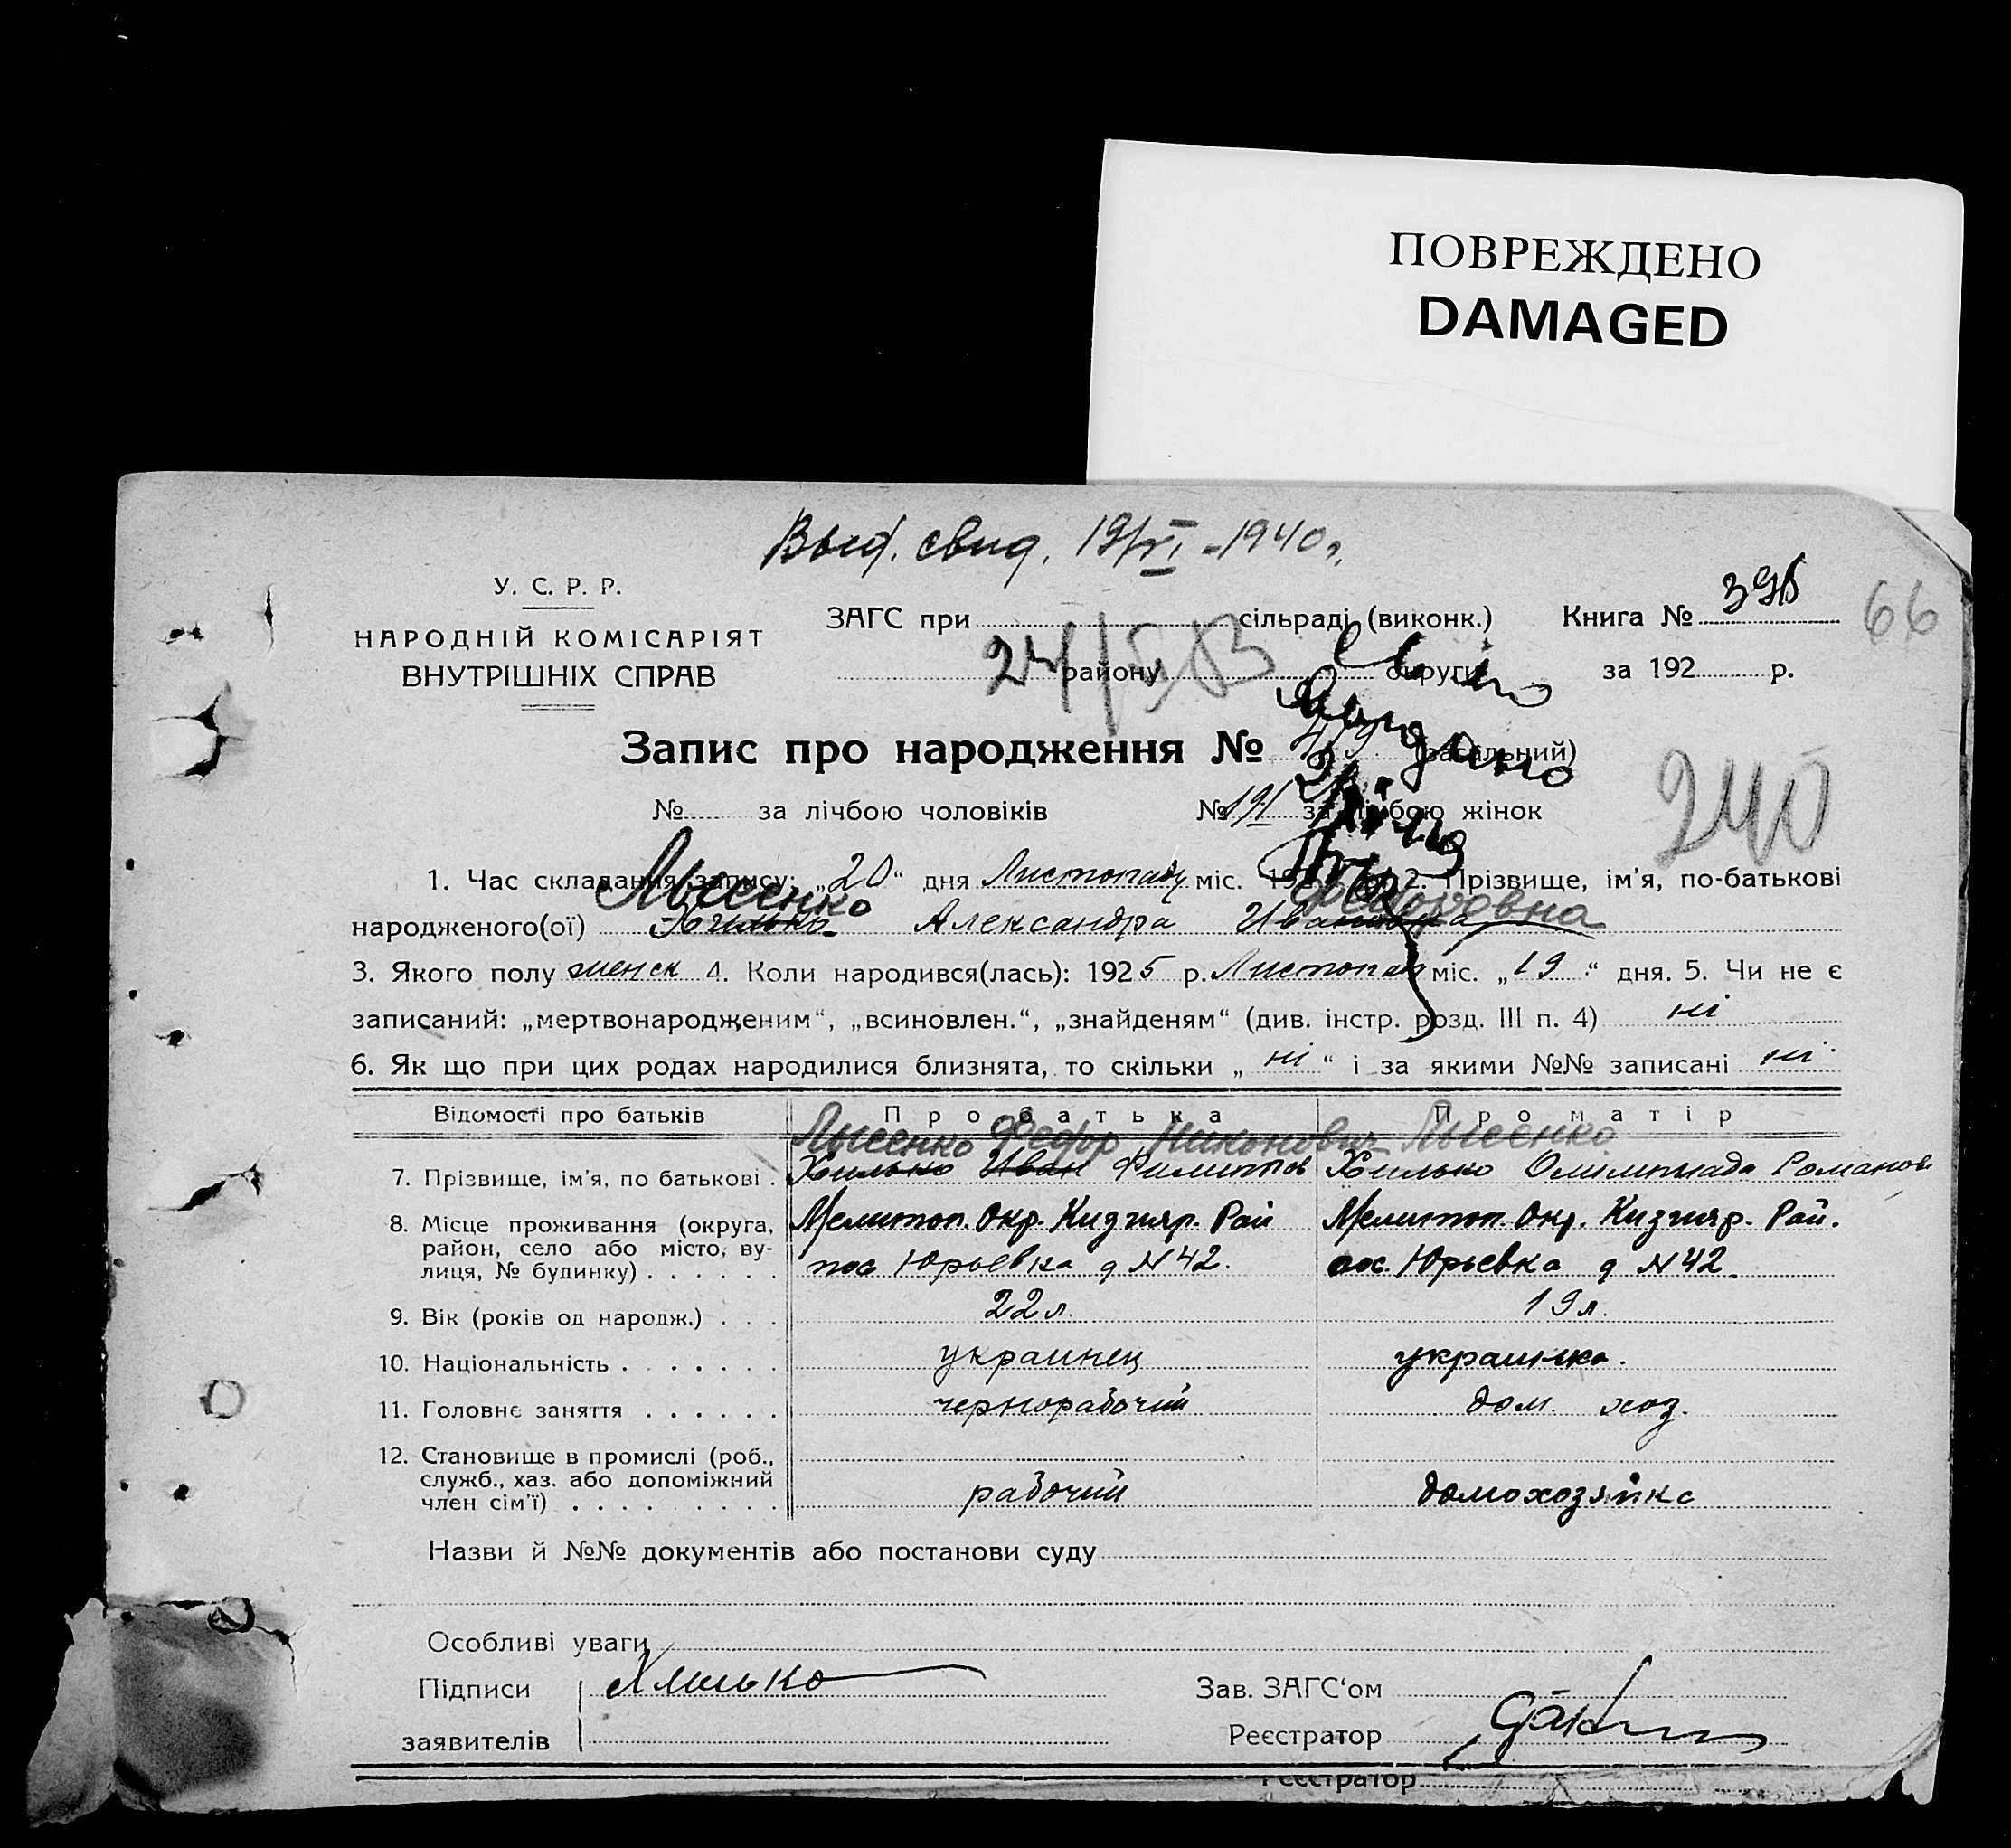 ПОВРЕЖДЕНО
DAMAGED
Выд. свид. 19/VI - 1940 г.
У. С. Р. Р.
НАРОДНІЙ КОМІСАРІЯТ
ВНУТРІШНІХ СПРАВ
ЗАГС при сільраді (виконк.) Книга № 395 66
району округи за 192 р.
Запис про народження № 419 (загальний)
240
№ за лічбою чоловіків № 191 за лічбою жінок
1. Час складання запису: „20“ дня Листопаду міс. 192 2. Прізвище, ім'я, по-батькові
Лысенко Федоровна
народженого(ої) Хилько Александра Ивановна
3. Якого полу женск 4. Коли народився(лась): 1925 р. Листопад міс. „19“ дня. 5. Чи не є
записаний: „мертвонародженим“, „всиновлен.“, „знайденям“ (див. інстр. розд. III п. 4) ні
6. Як що при цих родах народилися близнята, то скільки „ні“ і за якими №№ записані ні
Відомості про батьків Про батька Про матір
Лысенко Федор Никонович Лысенко
7. Прізвище, ім'я, по батькові . Хилько Иван Филиппов Хилько Олимпиада Романов
8. Місце проживання (округа, Мелитоп. Окр. Кизияр. Рай Мелитоп. Окр. Кизияр. Рай.
район, село або місто, ву-
лиця, № будинку) . . . . . . пос Юрьевка д N 42. пос. Юрьевка д N 42.
9. Вік (років од народж.) . . . 22 л. 19 л.
10. Національність . . . . . . . украинец украинка.
11. Головнє заняття . . . . . . чернорабочий дом. хоз.
12. Становище в промислі (роб.,
служб., хаз. або допоміжний
член сім'ї) . . . . . . . . . рабочий домохозяйка
Назви й №№ документів або постанови суду
Особливі уваги
Підписи Хилько Зав. ЗАГС'ом
заявителів Реєстратор
Реєстратор